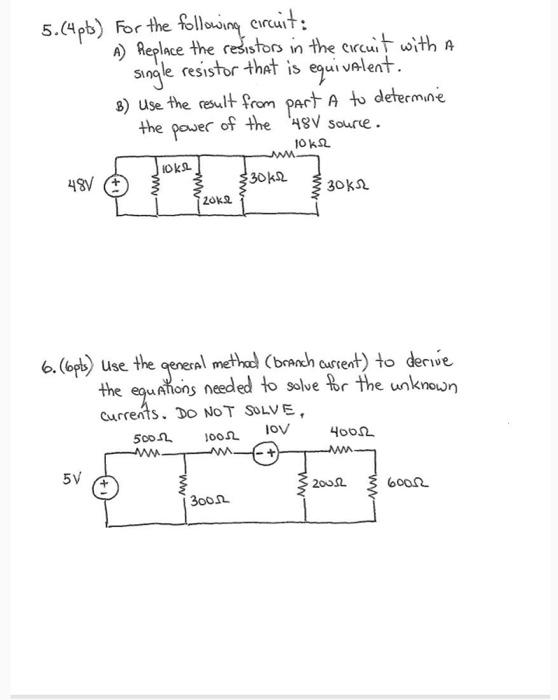 5. (4pts) For the following circuit:
A) Replace the resistors in the circuit with A
single resistor that is equivalent.
B) Use the result from part A to determine
the power of the 48V source.
10KΩ
10KΩ
48V
30KΩ
30KΩ
20KΩ
6. (6pts) Use the general method (branch current) to derive
the equations needed to solve for the unknown
currents. DO NOT SOLVE.
500Ω 100Ω 10V 400Ω
5V
200Ω 600Ω
300Ω